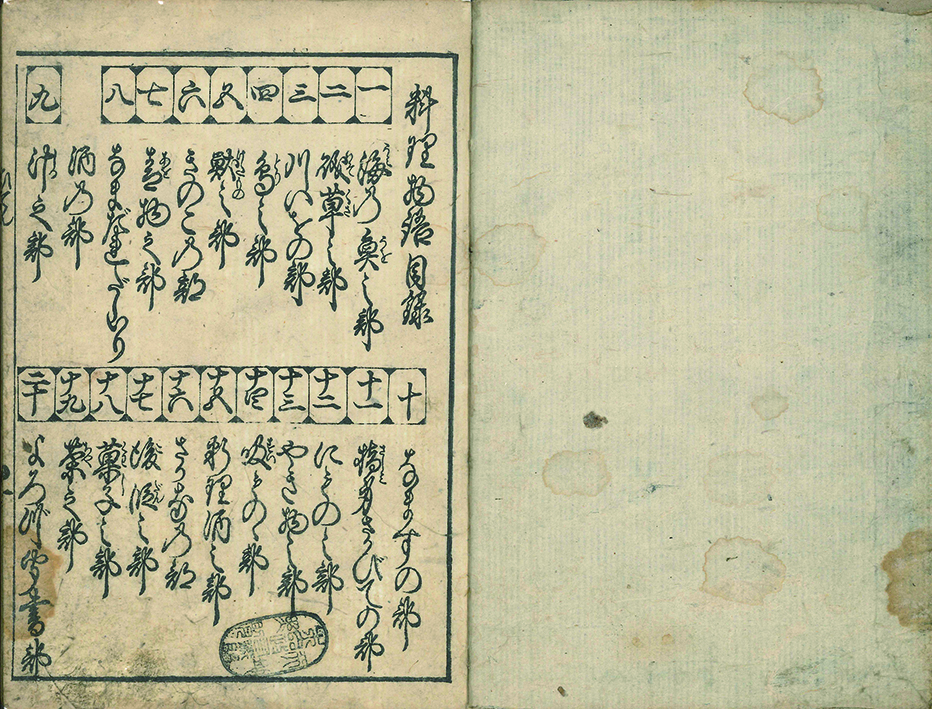 料理物語目録
一 海の魚之部
二 磯草之部
三 川いをの部
四 鳥之部
五 獣之部
六 きのこの部
七 青物之部
八 なまだれだしいり
酒の部
九 汁之部
十 なますの部
十一 指身さかびての部
十二 にもの之部
十三 やき物之部
十四 吸もの之部
十五 料理酒之部
十六 さかなの部
十七 後段之部
十八 菓子之部
十九 茶之部
二十 よろづ聞書部